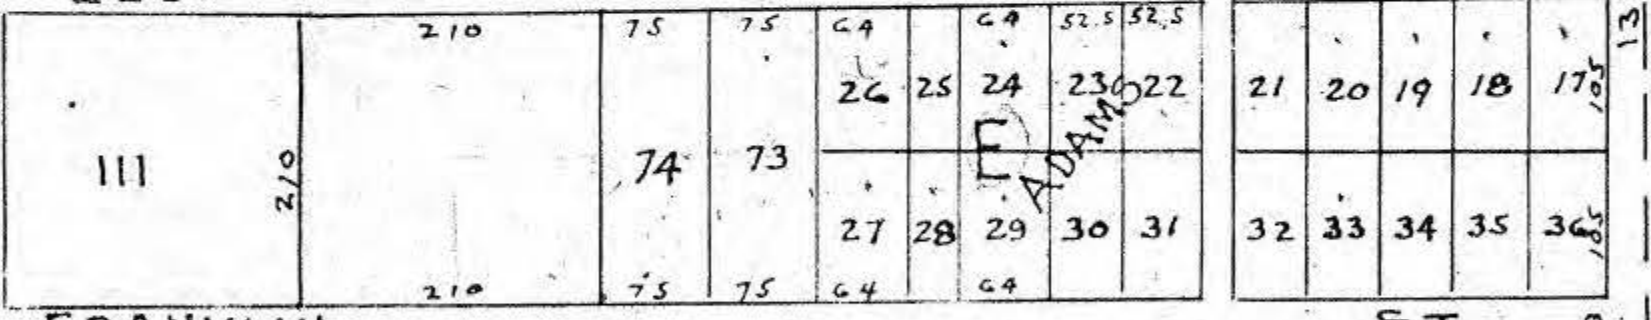 210 75 75 64 64 52.5 52.5
13
26 25 24 23 22 21 20 19 18 17 105
111 210 74 73 E ADAMS
27 28 29 30 31 32 33 34 35 36 105
210 75 75 64 64
ST